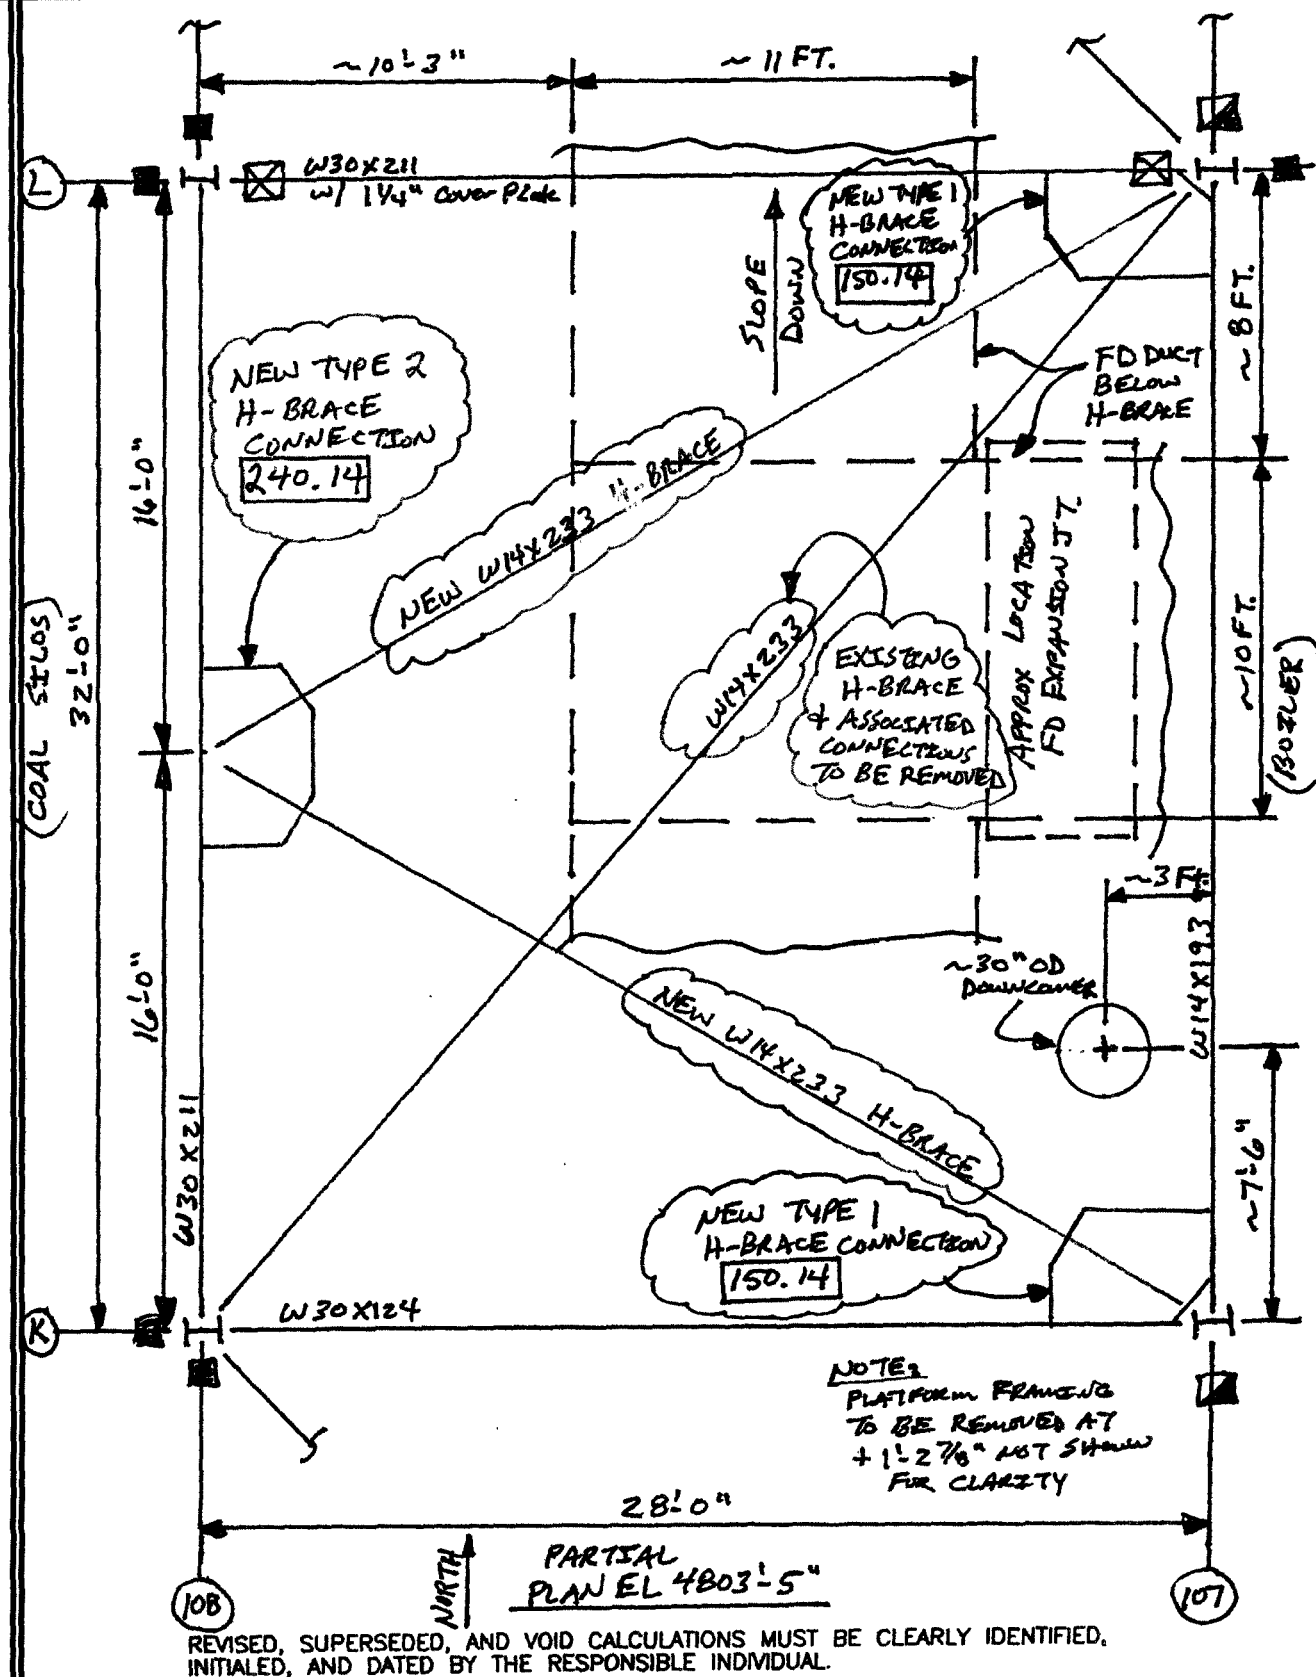 ~10'-3"
~11 FT.
L
W30X211
w/ 1¼" Cover Plate
NEW TYPE 1
H-BRACE
CONNECTION
150.14
SLOPE
DOWN
~8 FT.
FD DUCT
BELOW
H-BRACE
NEW TYPE 2
H-BRACE
CONNECTION
240.14
16'-0"
NEW W14X233 H-BRACE
W14X233
EXISTING
H-BRACE
& ASSOCIATED
CONNECTIONS
TO BE REMOVED
APPROX LOCATION
FD EXPANSION JT.
~10 FT.
(BOILER)
(COAL SILOS)
32'-0"
16'-0"
~3 FT.
W14X193
~30" OD
DOWNCOMER
NEW W14X233 H-BRACE
W30X211
~7'-6"
NEW TYPE 1
H-BRACE CONNECTION
150.14
K
W30X124
NOTE:
PLATFORM FRAMING
TO BE REMOVED AT
+1'-2 7/8" NOT SHOWN
FOR CLARITY
28'-0"
NORTH
PARTIAL
PLAN EL 4803'-5"
108
107
REVISED, SUPERSEDED, AND VOID CALCULATIONS MUST BE CLEARLY IDENTIFIED,
INITIALED, AND DATED BY THE RESPONSIBLE INDIVIDUAL.